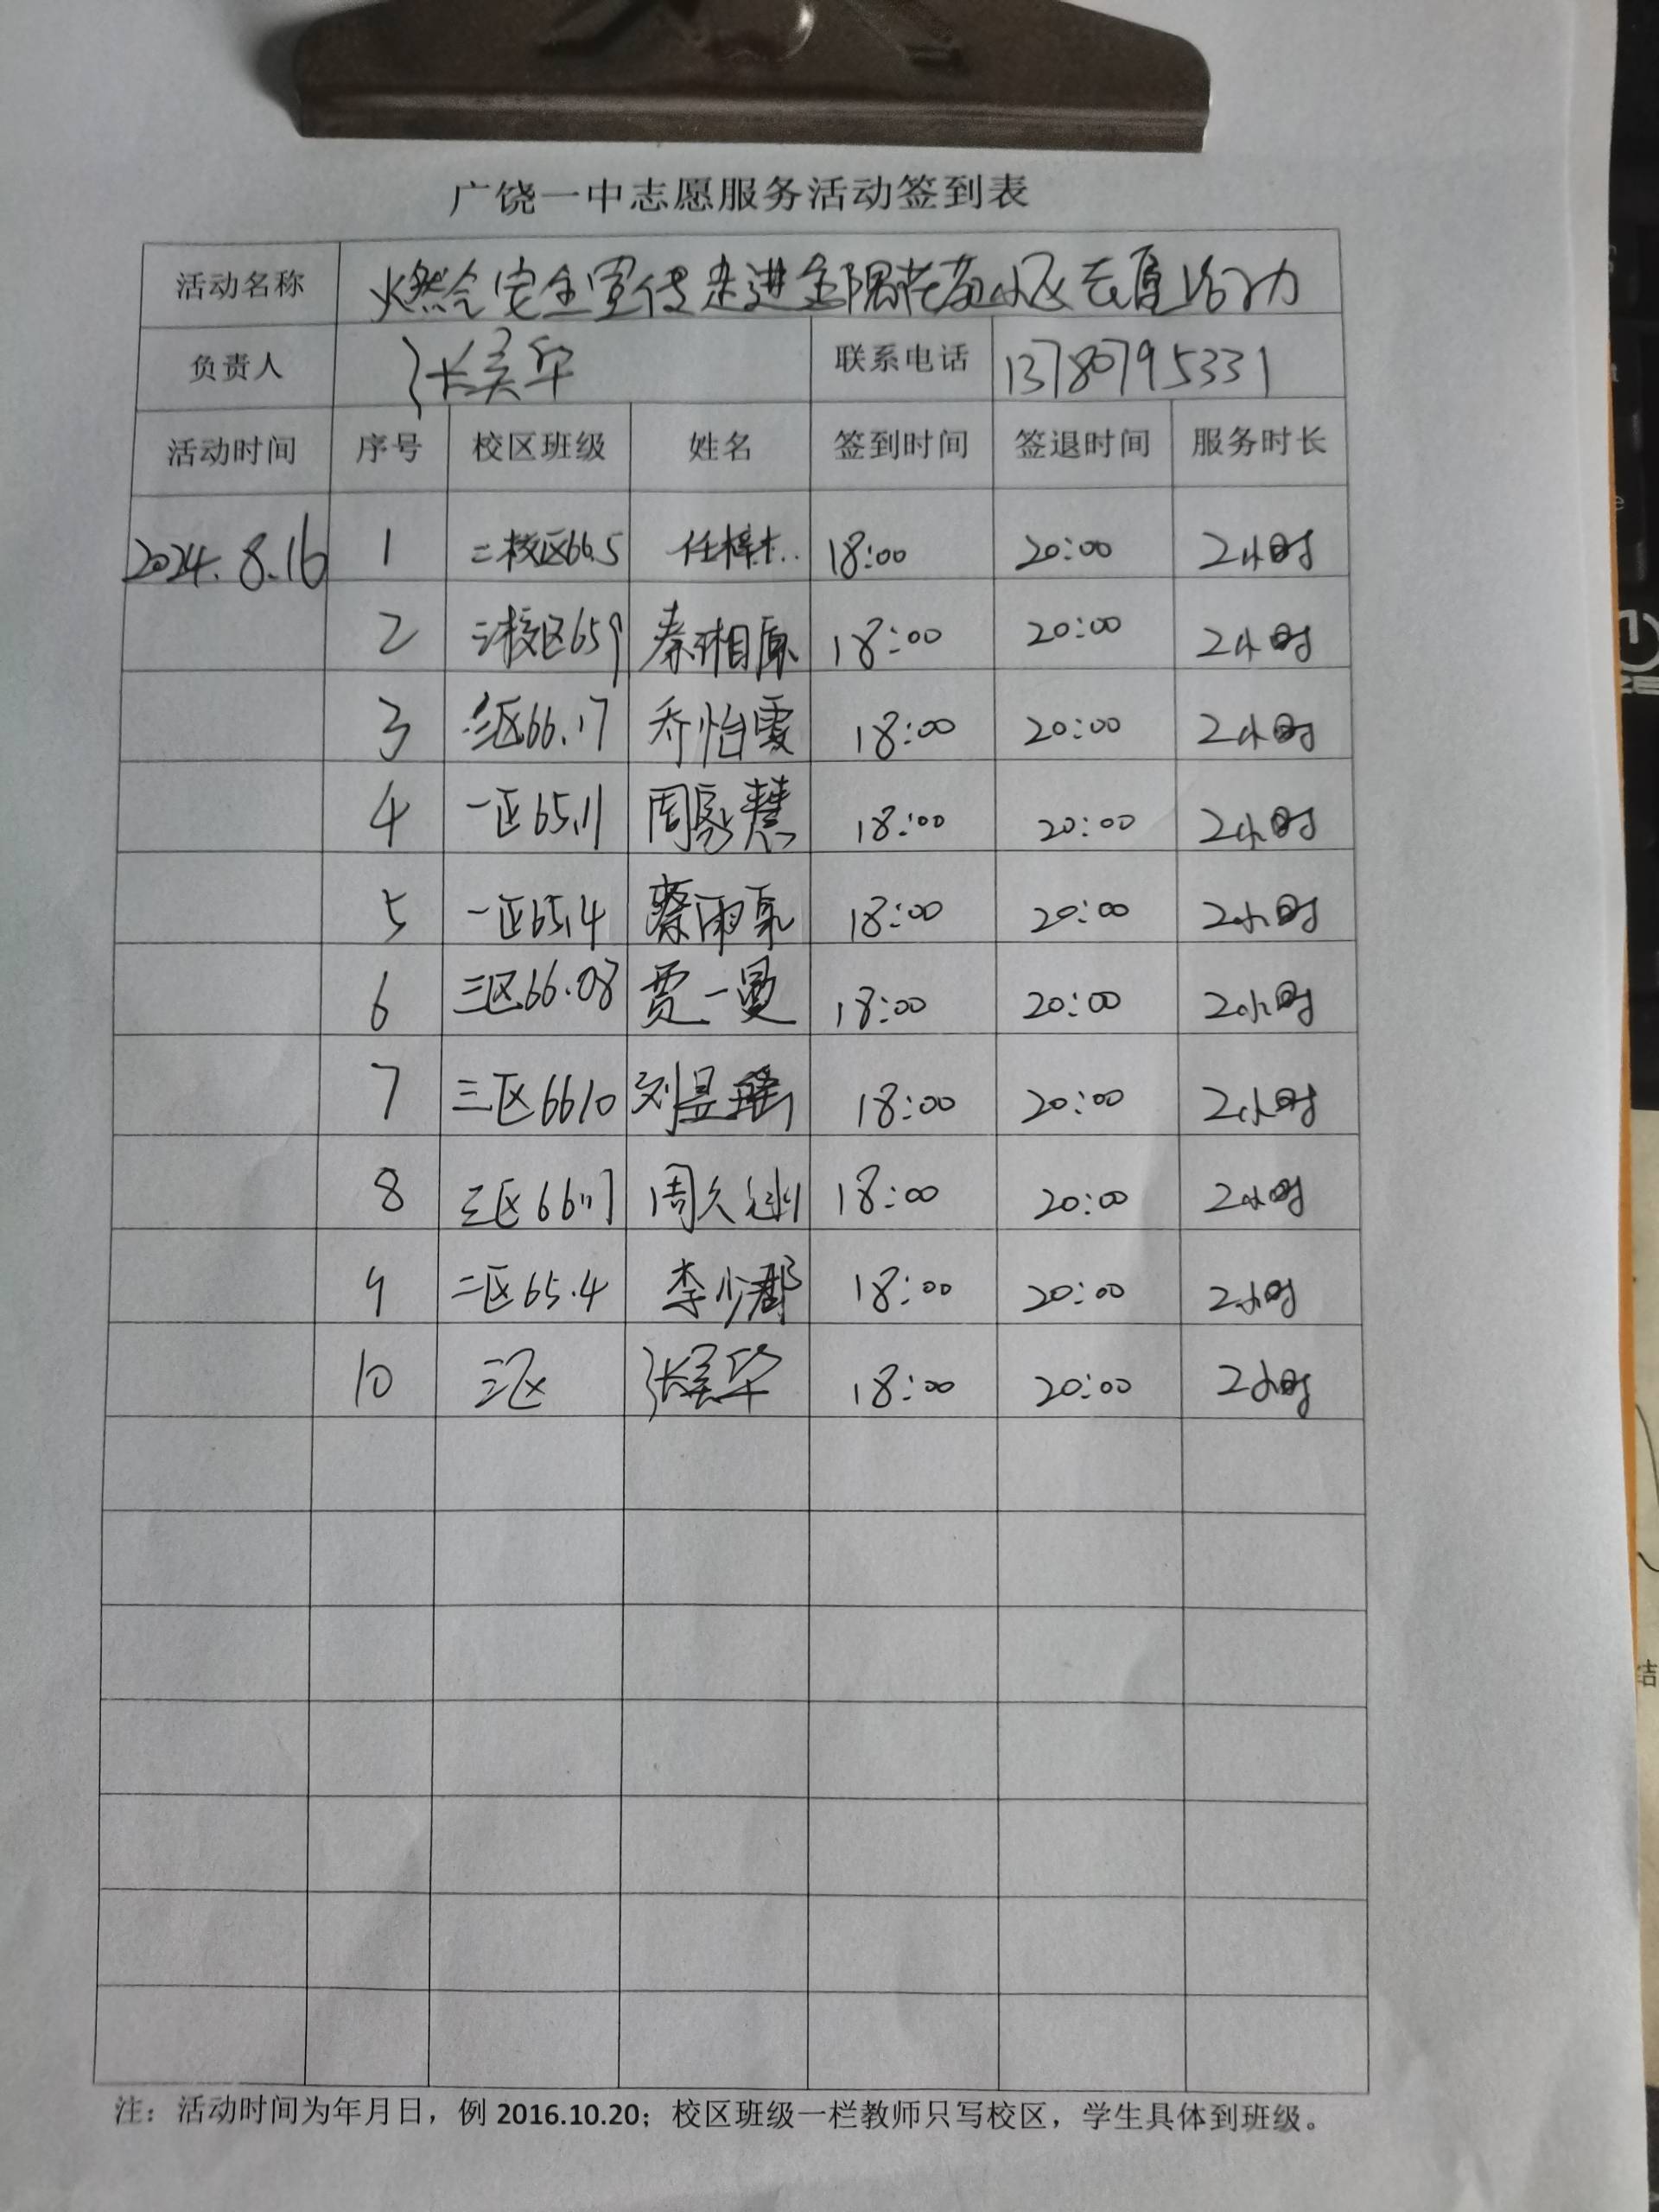 广饶一中志愿服务活动签到表
活动名称 安全宣传走进 小区
负责人 张美华 联系电话 13780795331
活动时间 序号 校区班级 姓名 签到时间 签退时间 服务时长
2024.8.16 1 二校区66.5 18:00 20:00 2小时
2 三校区659 秦湘原 18:00 20:00 2小时
3 三区66.17 乔怡雯 18:00 20:00 2小时
4 一区65.11 周 慧 18:00 20:00 2小时
5 一区65.4 蔡雨 18:00 20:00 2小时
6 三区66.08 贾一曼 18:00 20:00 2小时
7 三区6610 刘昱瑶 18:00 20:00 2小时
8 三区 周久 18:00 20:00 2小时
9 二区65.4 李少郡 18:00 20:00 2小时
10 三区 张美华 18:00 20:00 2小时
注：活动时间为年月日，例 2016.10.20；校区班级一栏教师只写校区，学生具体到班级。
结